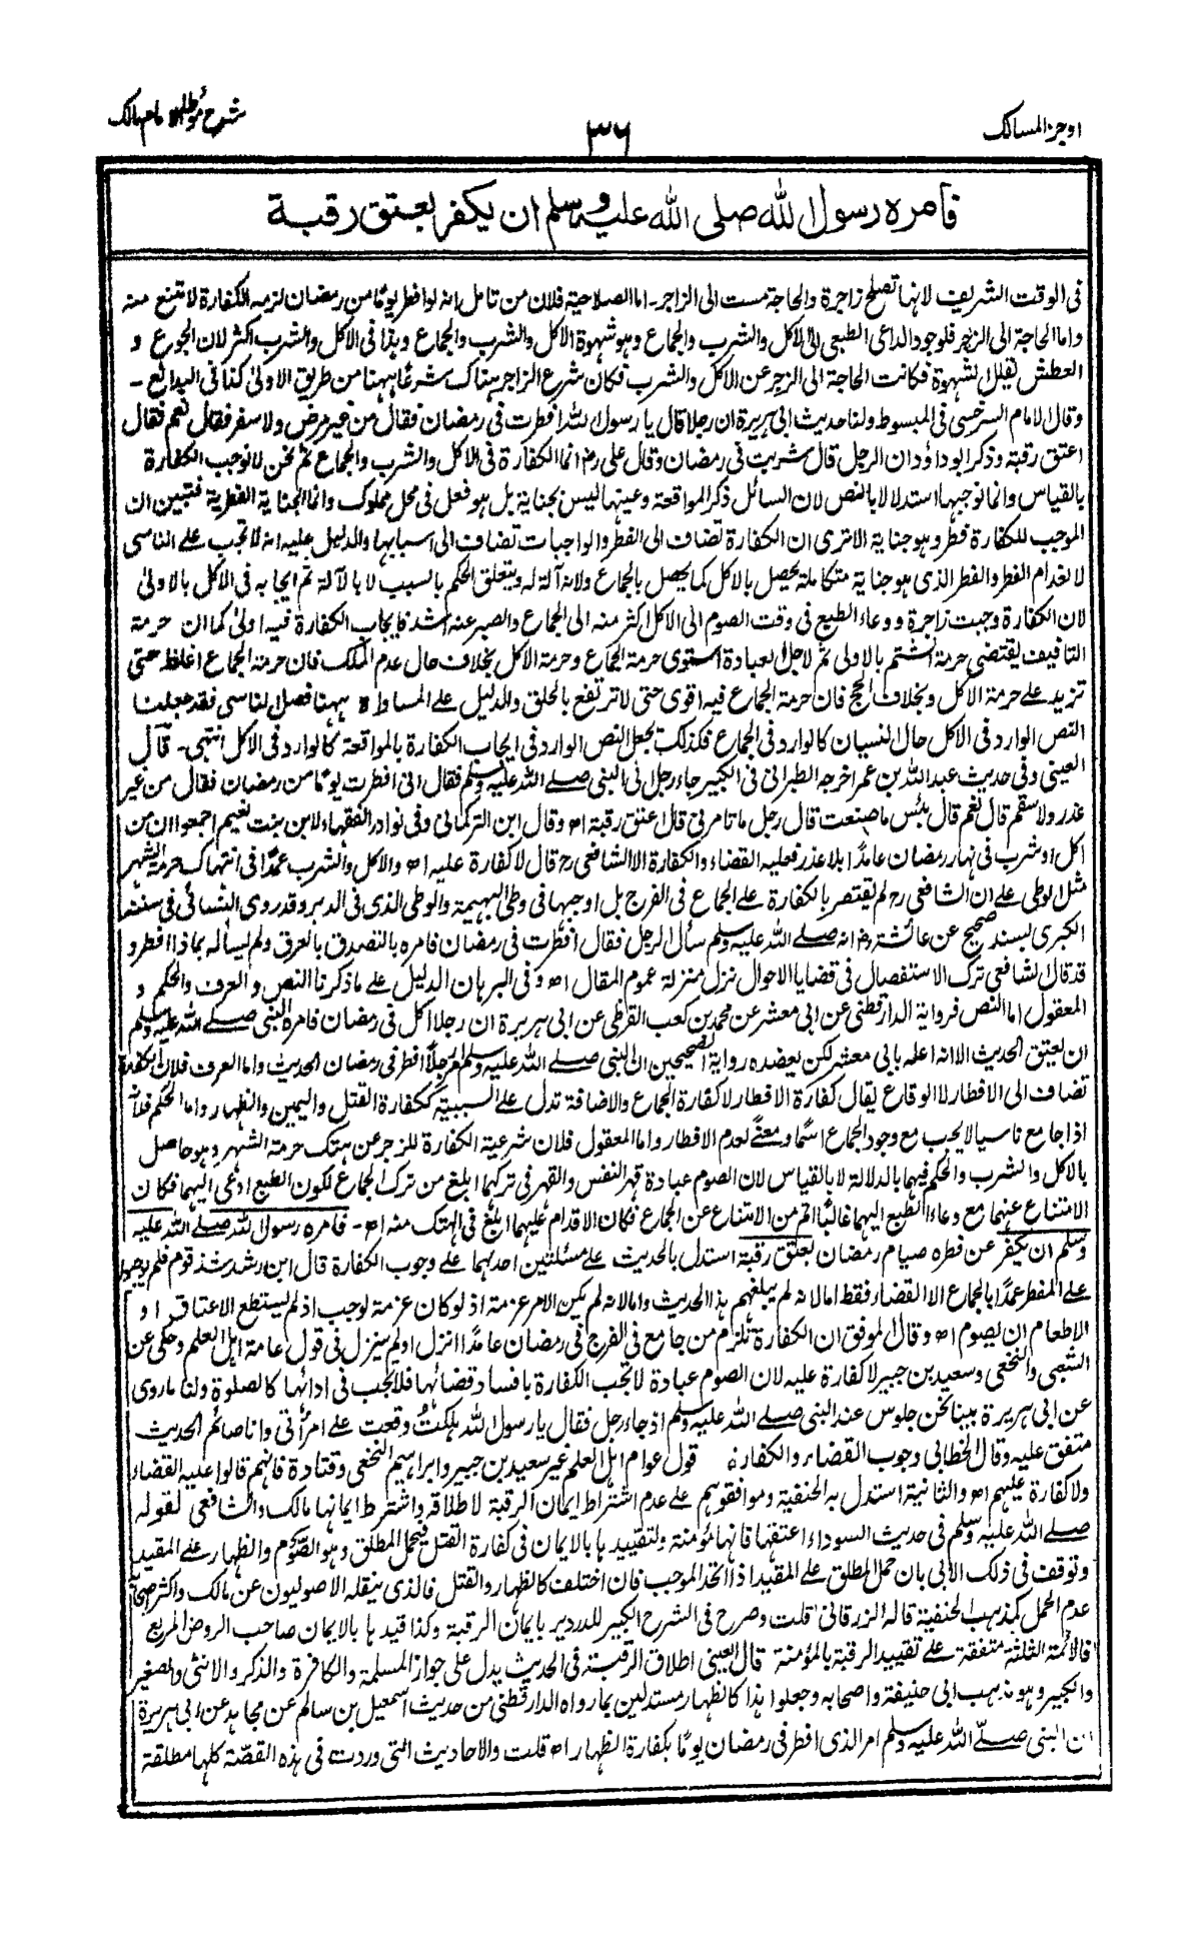 اوجز المسالك
٣٦
شرح مؤطا امام مالك
فامره رسول الله صلى الله عليه وسلم ان يكفر بعتق رقبة
فى الوقت الشريف لانها تصلح زاجرة والحاجة مست الى الزاجر- اما الصلاحية فلان من تامل انه لو افطر يوما من رمضان لزمه الكفارة لامتنع منه
واما الحاجة الى الزجر فلوجود الداعى الطبعى الى الاكل والشرب والجماع وهو شهوة الاكل والشرب والجماع وهذا فى الاكل والشرب اكثر لان الجوع و
العطش يقلل الشهوة فكانت الحاجة الى الزجر عن الاكل والشرب فكان شرع الزاجر هناك شرعا ههنا من طريق الاولى كذا فى البدائع -
وقال الامام السرخسى فى المبسوط ولنا حديث ابى هريرة ان رجلا قال يا رسول الله افطرت فى رمضان فقال من غير مرض ولا سفر فقال نعم فقال
اعتق رقبة وذكر ابو داؤد ان الرجل قال شربت فى رمضان وقال على رض انما الكفارة فى الاكل والشرب والجماع ثم نحن لا نوجب الكفارة
بالقياس وانما نوجبها استدلالا بالنص لان السائل ذكر المواقعة وعينها ليس بجناية بل هو فعل فى محل مملوك وانما الجناية الفطرية فتبين ان
الموجب للكفارة فطر وهو جناية الا ترى ان الكفارة تضاف الى الفطر والواجبات تضاف الى اسبابها والدليل عليه انه لا تجب على الناسى
لانعدام الفطر والفطر الذى هو جناية متكاملة يحصل بالاكل كما يحصل بالجماع ولانه آلة له ويتعلق الحكم بالسبب لا بالآلة ثم ايجابه فى الاكل بالاولى
لان الكفارة وجبت زاجرة ودعاء الطبع فى وقت الصوم الى الاكل اكثر منه الى الجماع والصبر عنه اشد فايجاب الكفارة فيه اولى كما ان حرمة
التافيف يقتضى حرمة الشتم بالاولى ثم لاجل العبادة استوى حرمة الجماع وحرمة الاكل بخلاف حال عدم الملك فان حرمة الجماع اغلظ حتى
تزيد على حرمة الاكل وبخلاف الحج فان حرمة الجماع فيه اقوى حتى لا ترتفع بالحلق والدليل على المساواة ههنا فصل الناسى فقد جعلنا
النص الوارد فى الاكل حال النسيان كالوارد فى الجماع فكذلك يجعل النص الوارد فى ايجاب الكفارة بالمواقعة كالوارد فى الاكل انتهى- قال
العينى وفى حديث عبد الله بن عمر اخرجه الطبرانى فى الكبير جاء رجل الى النبى صلى الله عليه وسلم فقال انى افطرت يوما من رمضان فقال من غير
عذر ولا سقم قال نعم قال بئس ما صنعت قال رجل ما تامرنى قال اعتق رقبة اه وقال ابن التركمانى وفى نوادر الفقهاء لابن بنت نعيم اجمعوا ان من
اكل او شرب فى نهار رمضان عامدا بلا عذر فعليه القضاء والكفارة الا الشافعى رح قال لا كفارة عليه اه والاكل والشرب عمدا فى انتهاك حرمة الشهر
مثل الوطى على ان الشافعى رح لم يقتصر بالكفارة على الجماع فى الفرج بل اوجبها فى وطى البهيمة والوطى الذى فى الدبر وقد روى النسائى فى سننه
الكبرى بسند صحيح عن عائشة رض انه صلى الله عليه وسلم سأل الرجل فقال افطرت فى رمضان فامره بالتصدق بالعرق ولم يسأله بماذا افطر و
قد قال الشافعى ترك الاستفصال فى قضايا الاحوال نزل منزلة عموم المقال اه وفى البرهان الدليل على ما ذكرنا النص والعرف والحكم و
المعقول اما النص فرواية الدارقطنى عن ابى معشر عن محمد بن كعب القرظى عن ابى هريرة ان رجلا اكل فى رمضان فامره النبى صلى الله عليه وسلم
ان يعتق الحديث الا انه اعله بابى معشر لكن يعضده رواية الصحيحين ان النبى صلى الله عليه وسلم امر رجلا افطر فى رمضان الحديث واما العرف فلان الكفارة
تضاف الى الافطار لا الوقاع يقال كفارة الافطار لا كفارة الجماع والاضافة تدل على السببية ككفارة القتل واليمين والظهار واما الحكم فلانه
اذا جامع ناسيا لا يجب مع وجود الجماع اسما ومعنى لعدم الافطار واما المعقول فلان شرعية الكفارة للزجر عن هتك حرمة الشهر وهو حاصل
بالاكل والشرب والحكم فيهما بالدلالة لا بالقياس لان الصوم عبادة قهر النفس والقهر فى تركهما ابلغ من ترك الجماع لكون الطبع ادعى اليهما فكان
الامتناع عنهما مع دعاء الطبع اليهما غالبا اتم من الامتناع عن الجماع فكان الاقدام عليهما ابلغ فى الهتك منه اه- فامره رسول الله صلى الله عليه
وسلم ان يكفر عن فطره صيام رمضان بعتق رقبة استدل بالحديث على مسئلتين احدهما على وجوب الكفارة قال ابن رشد شذ قوم فلم يوجبوا
على المفطر عمدا بالجماع الا القضاء فقط اما لانه لم يبلغهم هذا الحديث واما لانه لم يكن الامر عزمة اذ لو كان عزمة لوجب اذ لم يستطع الاعتاق او
الاطعام ان يصوم اه وقال الموفق ان الكفارة تلزم من جامع فى الفرج فى رمضان عامدا انزل او لم ينزل فى قول عامة اهل العلم وحكى عن
الشعبى والنخعى وسعيد بن جبير لا كفارة عليه لان الصوم عبادة لا تجب الكفارة بافساد قضائها فلا تجب فى ادائها كالصلوة ولنا ما روى
عن ابى هريرة بينا نحن جلوس عند النبى صلى الله عليه وسلم اذ جاء رجل فقال يا رسول الله هلكت وقعت على امرأتى وانا صائم الحديث
متفق عليه وقال الخطابى وجوب القضاء والكفارة قول عوام اهل العلم غير سعيد بن جبير وابراهيم النخعى وقتادة فانهم قالوا عليه القضاء
ولا كفارة عليهم اه والثانية استدل به الحنفية وموافقوهم على عدم اشتراط ايمان الرقبة لاطلاقه واشترط ايمانها مالك والشافعى لقوله
صلى الله عليه وسلم فى حديث السوداء اعتقها فانها مؤمنة ولتقييدها بالايمان فى كفارة القتل فيحمل المطلق وهو الصوم والظهار على المقيد
وتوقف فى ذلك الابى بان حمل المطلق على المقيد اذا اتحد الموجب فان اختلف كالظهار والقتل فالذى ينقله الاصوليون عن مالك واكثر اصحابه
عدم الحمل كمذهب الحنفية قاله الزرقانى قلت وصرح فى الشرح الكبير للدردير بايمان الرقبة وكذا قيدها بالايمان صاحب الروض المربع
فالائمة الثلثة متفقة على تقييد الرقبة بالمؤمنة قال العينى اطلاق الرقبة فى الحديث يدل على جواز المسلمة والكافرة والذكر والانثى والصغير
والكبير وهو مذهب ابى حنيفة واصحابه وجعلوا هذا كالظهار مستدلين بما رواه الدارقطنى من حديث اسمعيل بن سالم عن مجاهد عن ابى هريرة
ان النبى صلى الله عليه وسلم امر الذى افطر فى رمضان يوما بكفارة الظهار اه قلت والاحاديث التى وردت فى هذه القصة كلها مطلقة